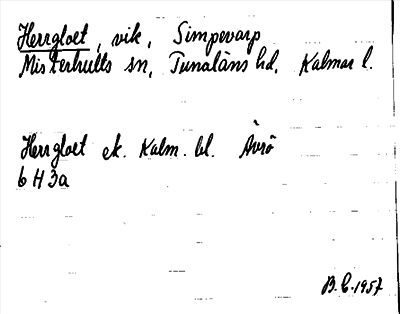 Herrgloet, vik, Simpevarp
Misterhults sn, Tunaläns hd, Kalmar l.
Herrgloet ek. Kalm. bl. Ävrö
6 H 3a
B.C. 1957